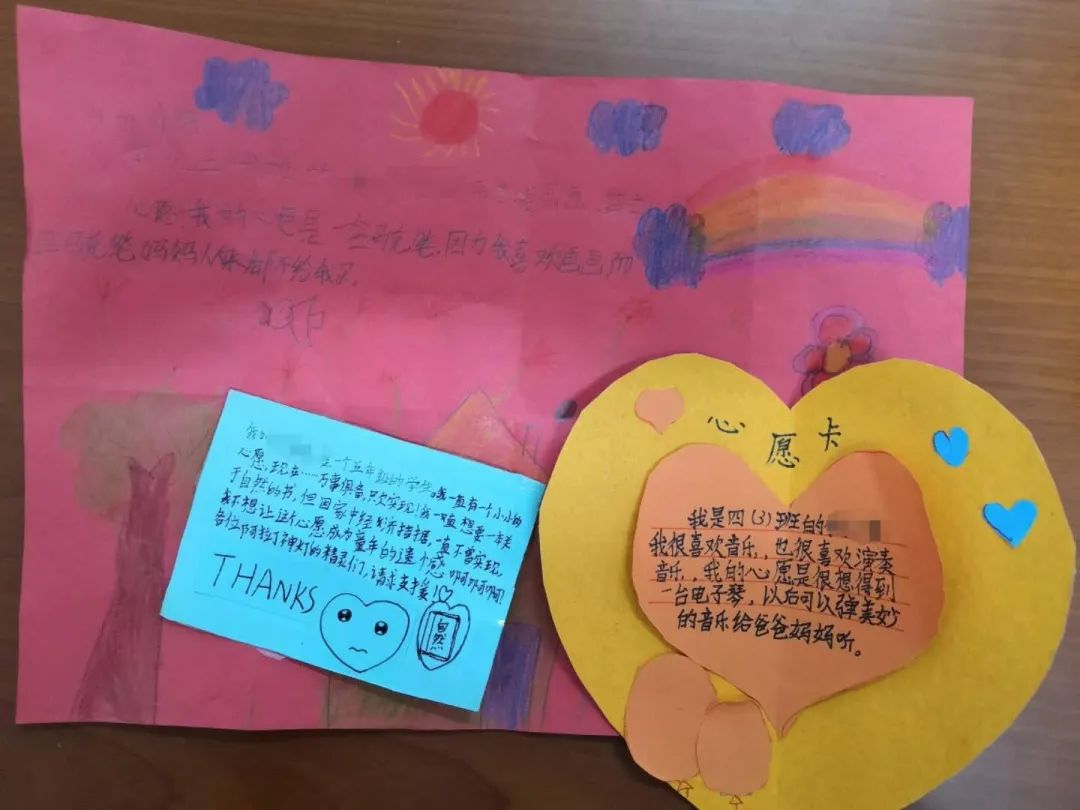 心愿.我的心愿是 马克笔,因为我喜欢画画而
且马克笔妈妈从来都不给我买.
我 是一个五年级的学生。我一直有一个小小的
心愿,现在……万事俱备,只欠实现!我一直想要一本关
于自然的书,但因家中经济拮据,一直不曾实现,
我不想让这个心愿成为童年的遗憾 啊啊啊啊!
各位阿拉丁神灯的精灵们,请求支援!
THANKS
自然
心愿卡
我是四(3)班的
我很喜欢音乐,也很喜欢演奏
音乐,我的心愿是很想得到
一台电子琴,以后可以弹美妙
的音乐给爸爸妈妈听。